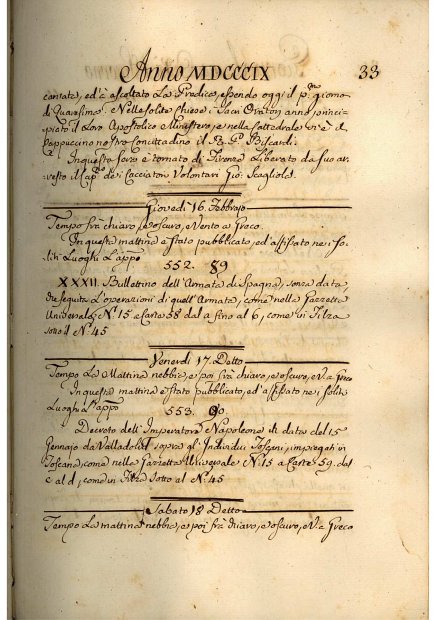 Anno MDCCCIX 33
cantata, ed è ascoltato La Predica, essendo oggi il p.mo giorno
di Quaresima. Nelle solite Chiese i Sacri Oratori anno princi-
piato il Loro Apostolico Ministero, e nella Cattedrale vi è il
Cappuccino nostro Concittadino il R. P. Biscardi.
In questa sera è tornato di Firenze Liberato da suo ar-
resto il Cap.no dei Cacciatori Volontari Gio: Scagliola
Giovedì 16. Febbrajo
Tempo frà chiaro, e oscuro, Vento a Greco
In questa mattina è stato pubblicato, ed affissato nei so-
liti Luoghi L'appo
552. 89
XXXII. Bullettino dell'Armata di Spagna, senza data
di seguito L'operazioni di quell'Armata, come nella Gazzetta
Universale N.o 15 e Carte 58 dal a fino al 6, come in Filza
sotto il N.o 45
Venerdì 17. Detto
Tempo La Mattina nebbia, e poi frà chiaro, e oscuro, V. a Greco
In questa mattina è stato pubblicato, ed affissato nei soliti
Luoghi L'appo
553. 90.
Decreto dell'Imperatore Napoleone in data del 15
Gennajo da Valladolid sopra gl'Individui Toscani, impiegati in
Toscana, come nella Gazzetta Universale N.o 15 a Carte 59. dal
c al d, come in Filza sotto al N.o 45
Sabato 18 Detto
Tempo La mattina nebbia, e poi frà chiaro, e oscuro, V. a Greco